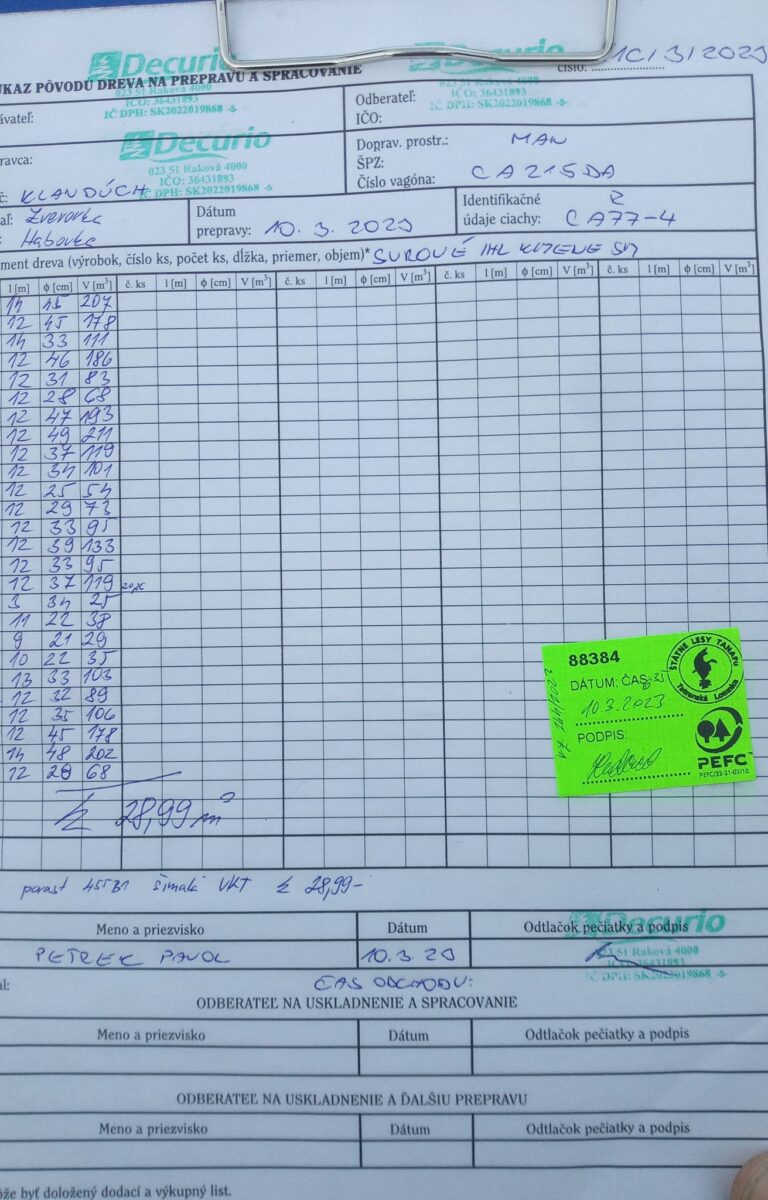 Decurio
Decurio
ČÍSLO: 10/3/2023
UKAZ PÔVODU DREVA NA PREPRAVU A SPRACOVANIE
023 51 Raková 4000
IČO: 36431893
IČ DPH: SK2022019868 -5-
IČO: 36431893
IČ DPH: SK2022019868 -5-
ávateľ:
Odberateľ:
IČO:
Decurio
023 51 Raková 4000
IČO: 36431893
IČ DPH: SK2022019868 -5-
ravca:
Doprav. prostr.: MAN
ŠPZ:
Číslo vagóna: CA215DA
č: KLANDÚCH
aľ: Zverovka
: Habovka
Dátum
prepravy: 10. 3. 2023
Identifikačné
údaje ciachy: Z CA77-4
ment dreva (výrobok, číslo ks, počet ks, dĺžka, priemer, objem)* SUROVÉ IHL KMENE SM
l [m] ϕ [cm] V [m³] č. ks l [m] ϕ [cm] V [m³] č. ks l [m] ϕ [cm] V [m³] č. ks l [m] ϕ [cm] V [m³] č. ks l [m] ϕ [cm] V [m³]
14 45 207
12 45 178
14 33 111
12 46 186
12 31 83
12 28 68
12 47 193
12 49 211
12 37 119
12 34 101
12 25 54
12 29 73
12 33 95
12 39 133
12 33 95
12 37 119
3 34 25
11 22 38
9 21 29
10 22 35
13 33 103
12 32 89
12 35 106
12 45 178
14 48 202
12 28 68
Σ 28,99 m³
88384
DÁTUM: ČAS:
10.3.2023
PODPIS:
ŠTÁTNE LESY TANAPU
Tatranská Lomnica
PEFC™
PEFC/23-21-03/10
porast 455B1 Šimalá VKT Σ 28,99-
Meno a priezvisko Dátum Odtlačok pečiatky a podpis
Decurio
PETREK PAVOL 10.3.23
023 51 Raková 4000
IČO: 36431893
IČ DPH: SK2022019868 -5-
al: ČAS ODCHODU:
ODBERATEĽ NA USKLADNENIE A SPRACOVANIE
Meno a priezvisko Dátum Odtlačok pečiatky a podpis
ODBERATEĽ NA USKLADNENIE A ĎALŠIU PREPRAVU
Meno a priezvisko Dátum Odtlačok pečiatky a podpis
ôže byť doložený dodací a výkupný list.